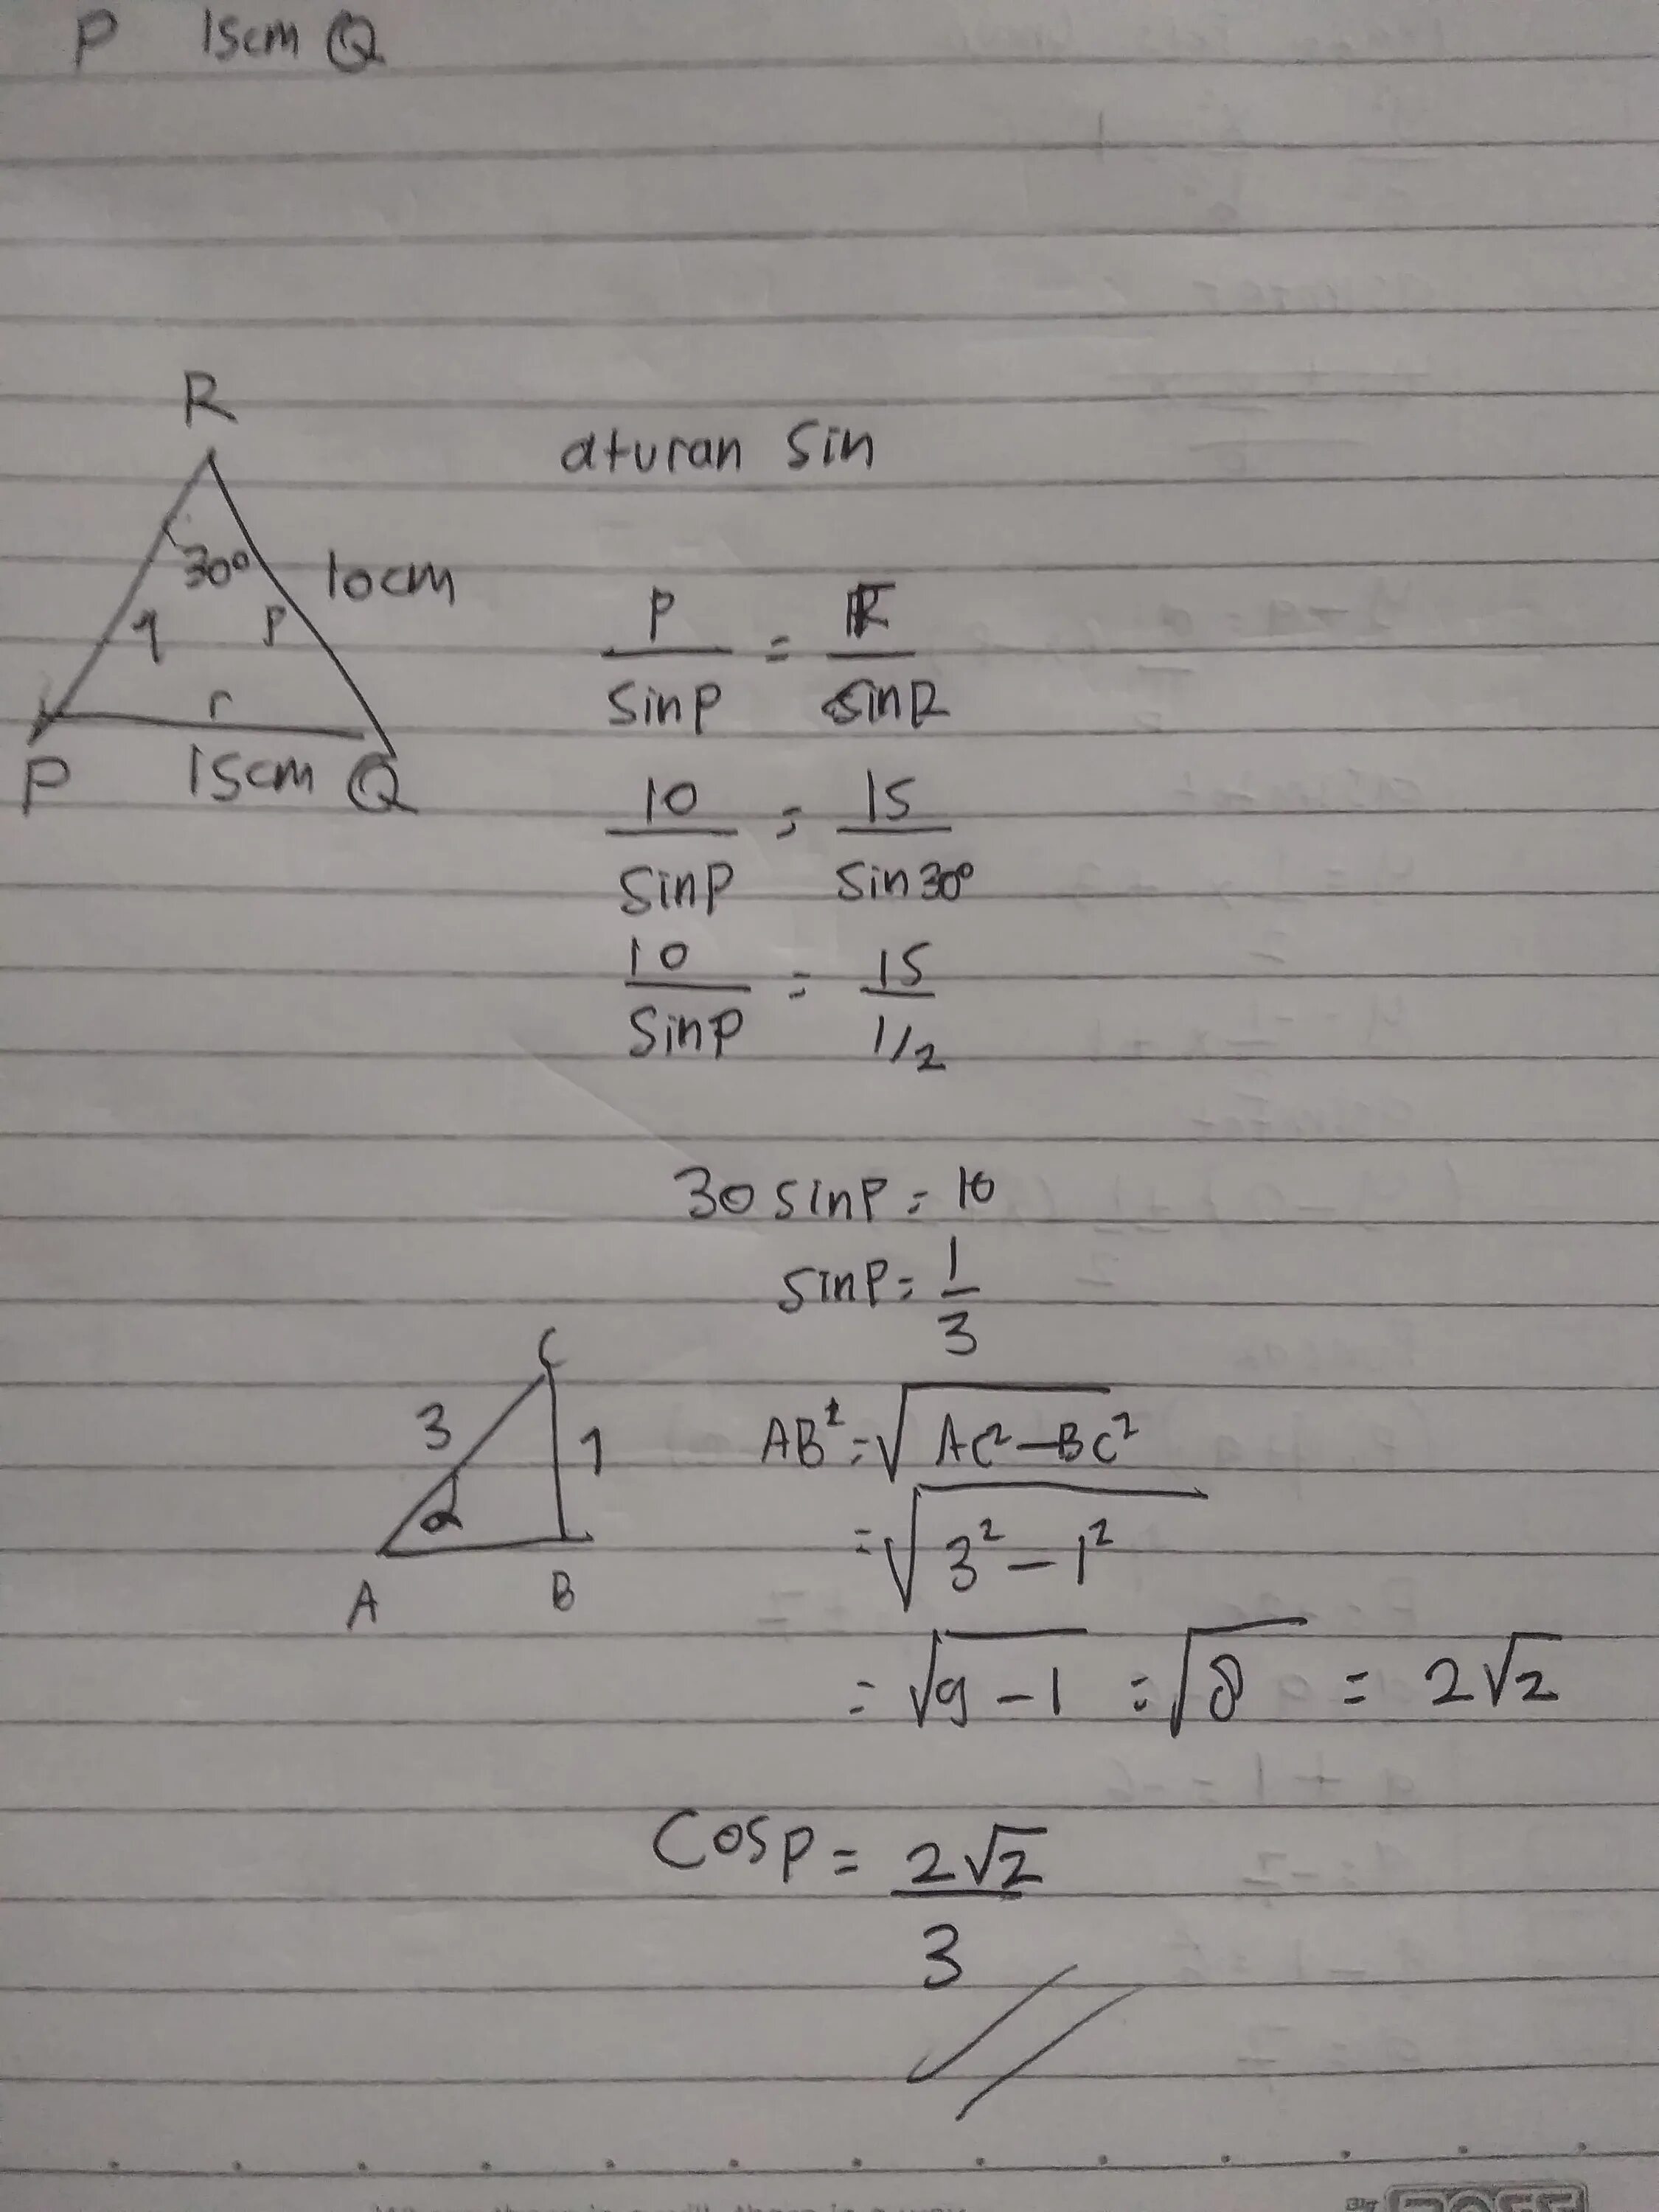 P 15cm Q
R
aturan sin
30° 10cm
q p
r
P 15cm Q
p/sinP = R/sinR
10/sinP = 15/sin30°
10/sinP = 15/1/2
30 sinP = 10
sinP = 1/3
C
3 1
α
A B
AB² = √AC²-BC²
= √3²-1²
= √9-1 = √8 = 2√2
Cosp = 2√2/3